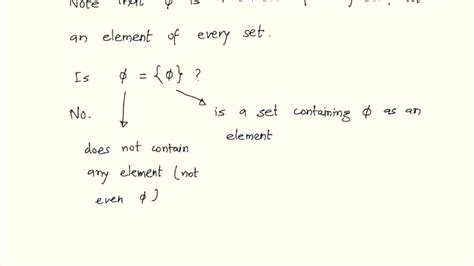 Note that φ is a
an element of every set.
Is φ = {φ} ?
No.
is a set containing φ as an
element
does not contain
any element (not
even φ)